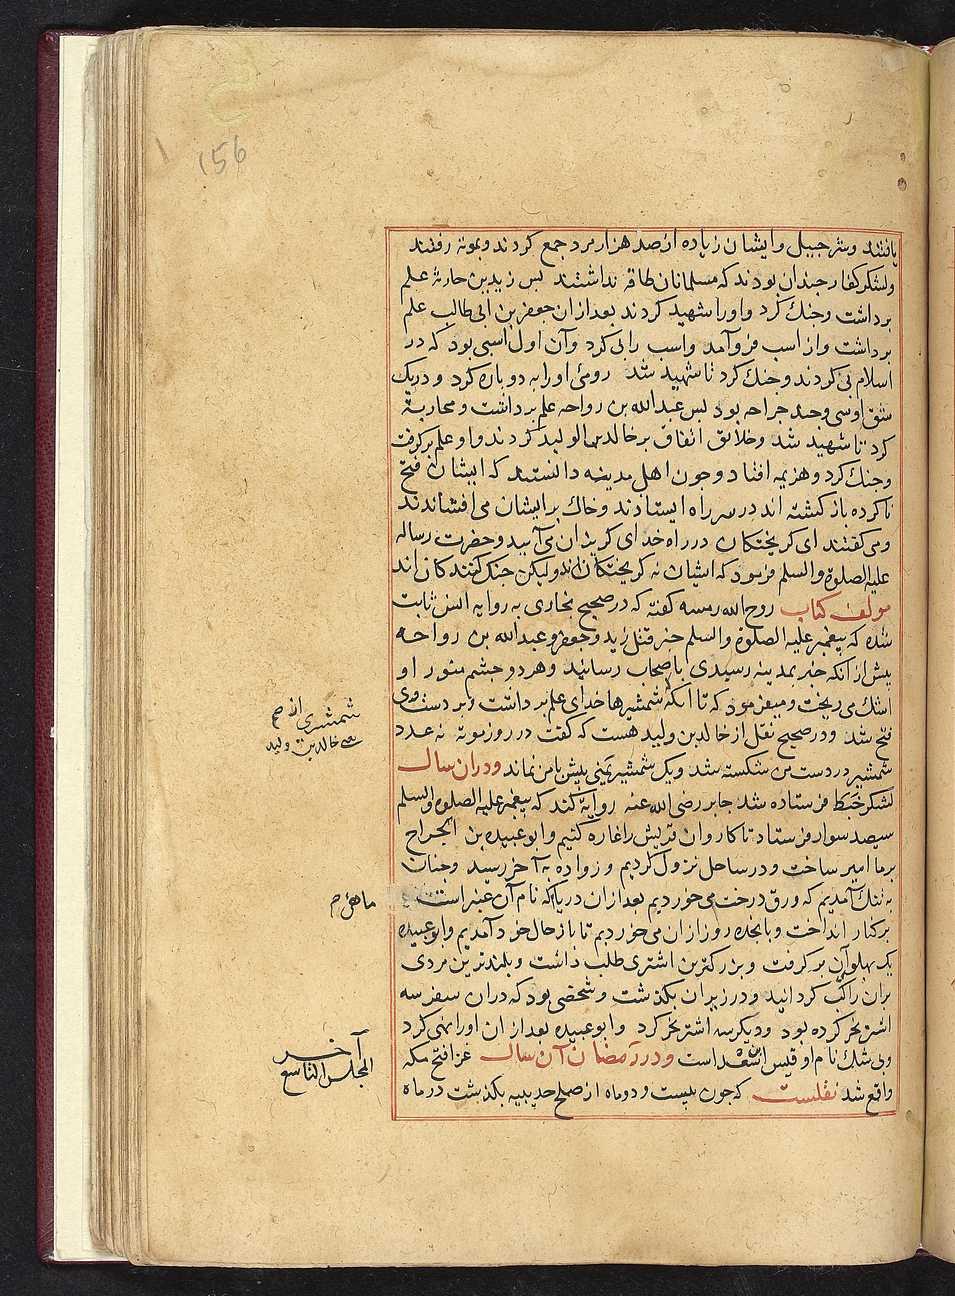 156
یافتند وشرجبیل وایشان زیاده از صد هزار مرد جمع کردند وبموته رفتند
ولشکر کفار چندان بودند که مسلمانان طاقه نداشتند پس زید بن حارثه علم
برداشت وجنك کرد واورا شهید کردند بعد از ان جعفر بن ابی طالب علم
برداشت واز اسب فرو آمد واسب را پی کرد وآن اول اسبی بود که در
اسلام پی کردند وجنك کرد تا شهید شد رومئ اورا به دو پاره کرد و دریک
شق او سی وچند جراحه بود پس عبد الله بن رواحه علم برداشت و محاربة
کرد تا شهید شد وخلائق اتفاق بر خالد بن الولید کردند واو علم برکرفت
وجنك کرد وهزیمه افتاد وچون اهل مدینه دانستند که ایشان فتح
ناکرده باز کشته اند در سر راه ایستادند وخاك بر ایشان می افشاندند
ومی کفتند ای کریختکان در راه خدای کریزان می آیید وحضرت رساله
علیه الصلوة والسلم فرمود که ایشان نه کریختکان اند ولیکن جنك کنندکان اند
مولف کتاب روح الله رمسه کفته که در صحیح بخاری به روایه انس ثابت
شده که پیغمبر علیه الصلوة والسلم خبر قتل زید وجعفر وعبد الله بن رواحه
پیش از انکه خبر بمدینه رسیدی باصحاب رسانید وهر دو چشم منور او
اشك می ریخت و میفرمود که تا آنکه شمشیرها خدای علم برداشت وبر دست وی
فتح شد ودر صحیح نقل از خالد بن ولید هست که کفت در روز موته نه عدد
شمشیر در دست من شکسته شد ویک شمشیر یمنی پیش با من نماند ودران سال
لشکر خبط فرستاده شد جابر رضی الله عنه روایه کند که پیغمبر علیه الصلوة والسلم
سیصد سوار فرستاد تا کاروان قریش را غاره کنیم وابو عبیده بن الجراح
بر ما امیر ساخت ودر ساحل نزول کردیم و زواده به آخر رسید وچنان
به تنك آمدیم که ورق درخت می خوردیم بعد ازان دریا که نام آن عنبر است
بر کنار انداخت و پانجده روز ازان می خوردیم تا باز حال خود آمدیم وابو عبیده
یک پهلوی آن بر کرفت وبزرکترین اشتری طلب داشت و بلندترین مردی
بران راکب کردانید ودر زیر ان بکذشت و شخصی بود که دران سفر سه
اشتر نحر کرده بود ودیکر سه اشتر نحر کرد وابو عبیده بعد از ان اورا نهی کرد
وبی شك نام او قیس بن سعد است ودر رمضان آن سال غزا فتح مکه
واقع شد نقلست که چون بیست و دو ماه از صلح حدیبیه بکذشت در ماه
شمشیری از
خالد بن ولید
ماهئ
آخر
المجلس التاسع